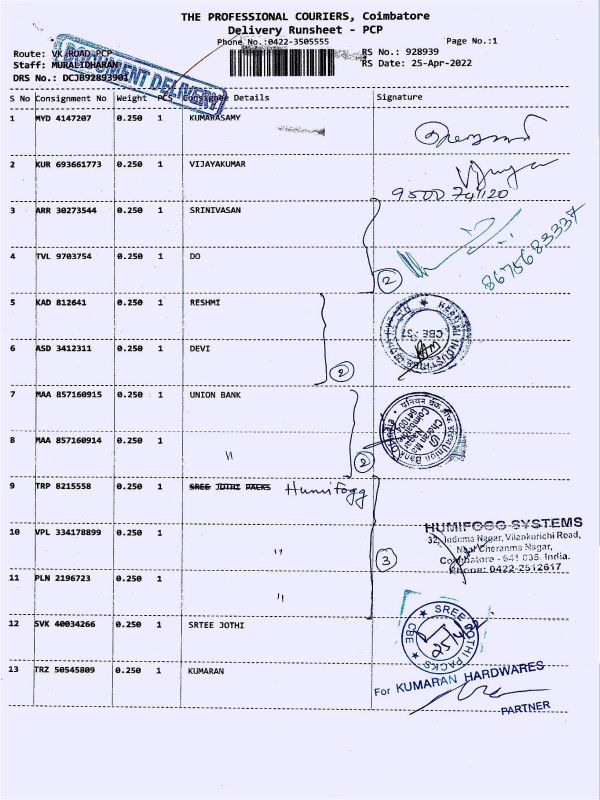 THE PROFESSIONAL COURIERS, Coimbatore
Delivery Runsheet - PCP
Phone No.:0422-3505555
Page No.:1
Route: VK ROAD PCP
RS No.: 928939
Staff: MURALIDHARAN
RS Date: 25-Apr-2022
DRS No.: DCJB92893901
DOCUMENT DELIVERY
S No Consignment No Weight PCS Consignee Details Signature
1 MYD 4147207 0.250 1 KUMARASAMY
2 KUR 693661773 0.250 1 VIJAYAKUMAR
Vijaya
9500 741120
3 ARR 30273544 0.250 1 SRINIVASAN
8675683337
4 TVL 9703754 0.250 1 DO
2
5 KAD 812641 0.250 1 RESHMI
CBE
6 ASD 3412311 0.250 1 DEVI
2
7 MAA 857160915 0.250 1 UNION BANK
Union Bank
Cheran Ma Nagar
Coimbatore
641035
8 MAA 857160914 0.250 1 "
2
9 TRP 8215558 0.250 1 SREE JOTHI PACKS Humifogg
HUMIFOGG SYSTEMS
32, Induma Nagar, Vilankurichi Road,
Near Cheranma Nagar,
Coimbatore - 641 035. India.
Phone: 0422-2512617
10 VPL 334178899 0.250 1 "
3
11 PLN 2196723 0.250 1 "
12 SVK 40034266 0.250 1 SRTEE JOTHI
SREE JOTHI PACKS
CBE
13 TRZ 50545809 0.250 1 KUMARAN
For KUMARAN HARDWARES
PARTNER